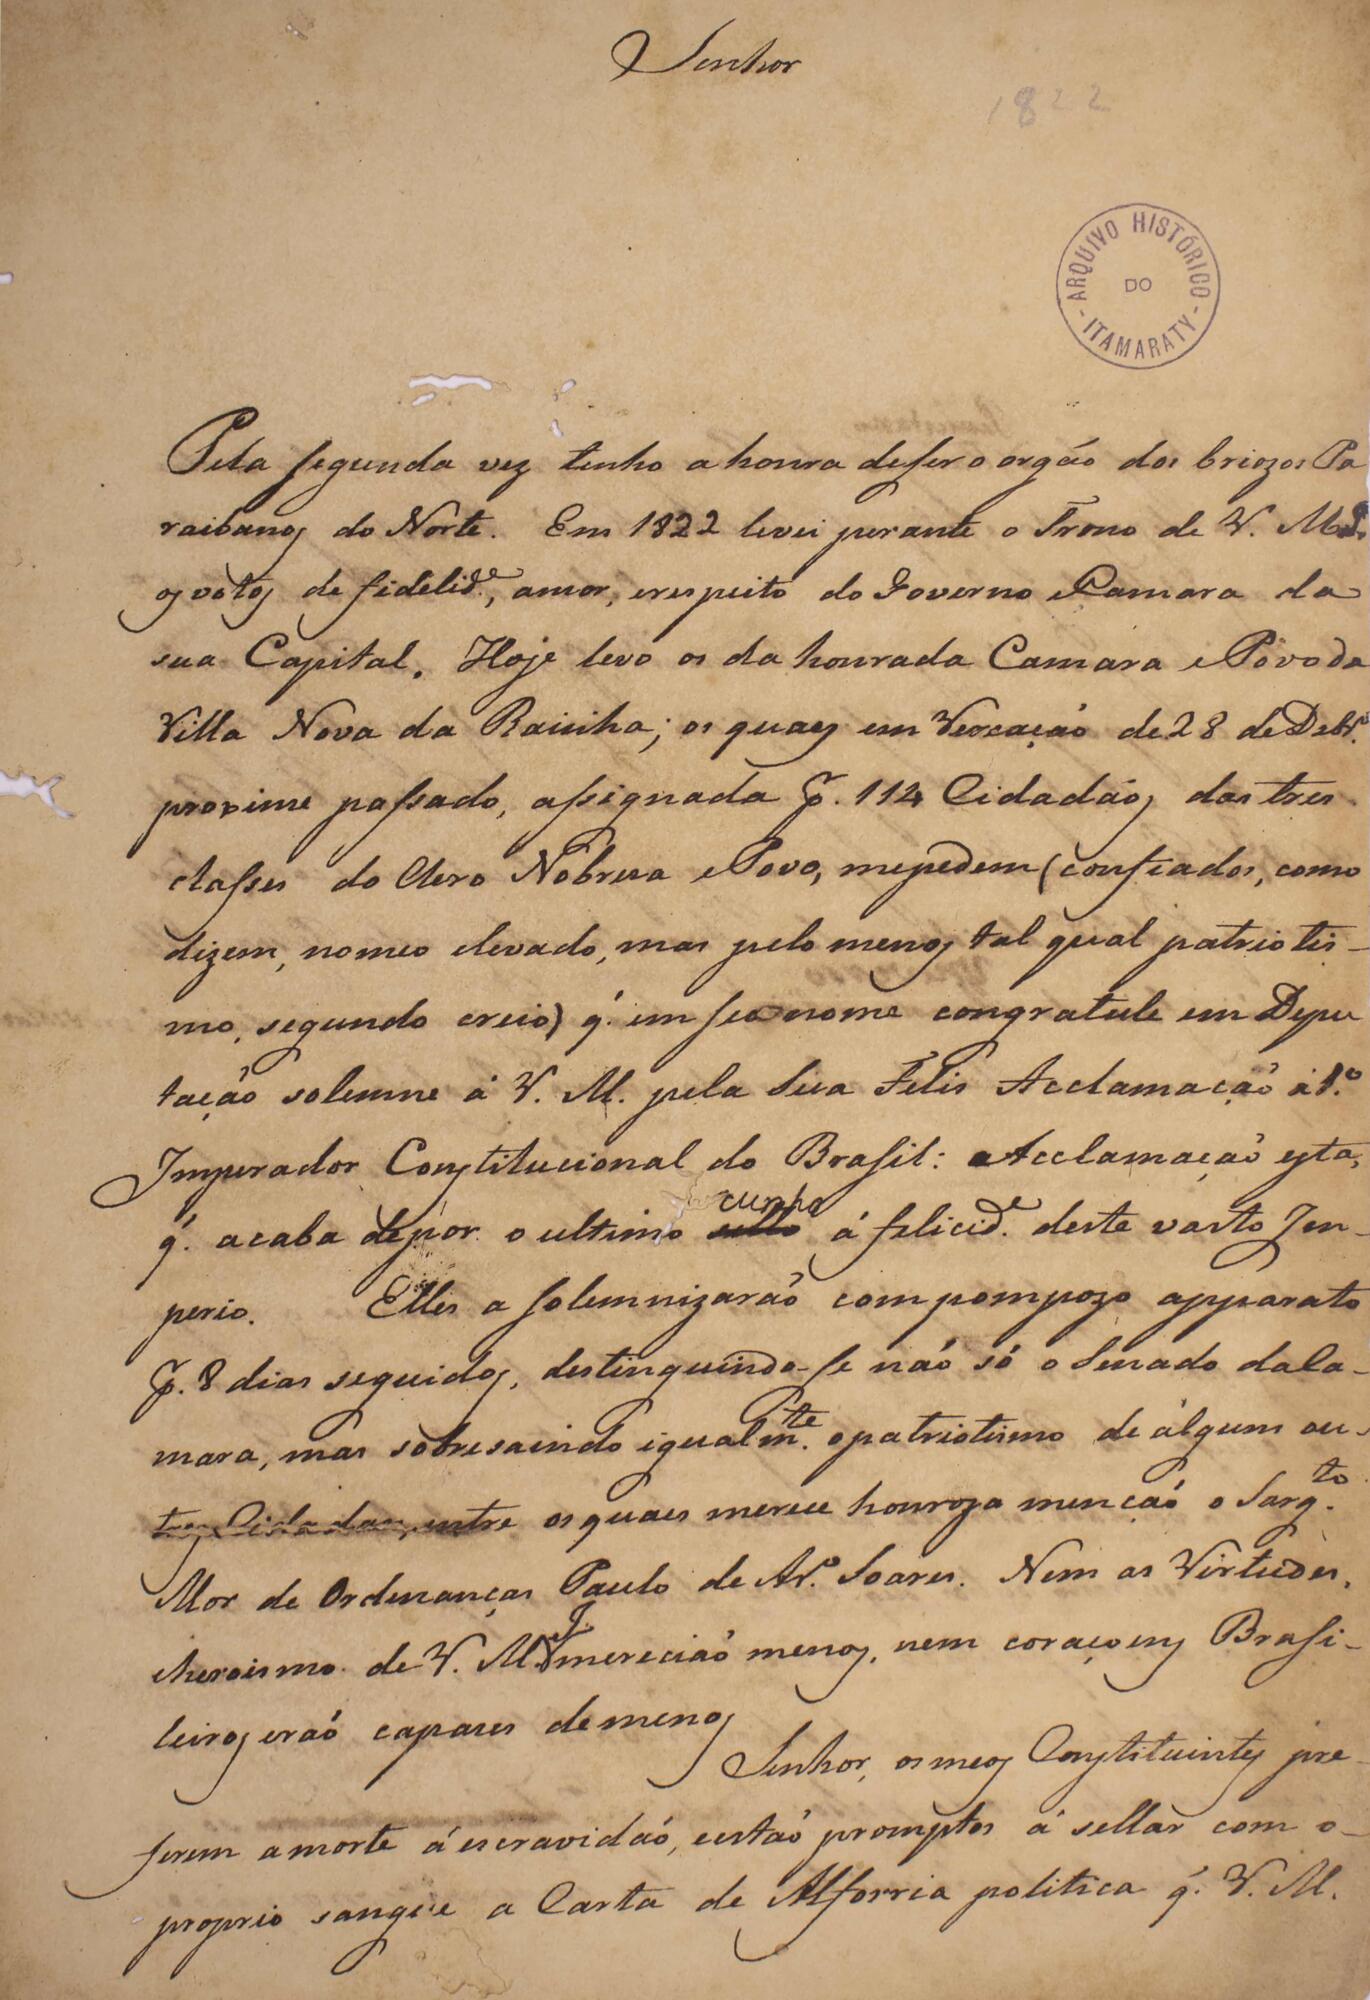 Senhor
1822
ARQUIVO HISTÓRICO
DO
ITAMARATY
Pela segunda vez tenho a honra de ser o orgáo dos briozos Pa
raibanos do Norte. Em 1822 levei perante o Trono de V. M. I.
os votos de fidelid.e, amor, e respeito do Governo e Camara da
sua Capital. Hoje levo os da honrada Camara e Povo da
Villa Nova da Rainha; os quaes em Vereação de 28 de Dezbr.o
proximo passado, assignada p. 114 Cidadãos das tres
classes do Clero Nobresa e Povo, me pedem (confiados, como
dizem, no meo elevado, mas pelo menos tal qual patriotis-
mo, segundo creio) q. em seo nome congratule em Depu
tação solemne á V. M. pela Sua Felis Acclamação á 1.o
Imperador Constitucional do Brasil: Acclamação esta,
q. acaba de pôr o ultimo sello cunho á felicid.e deste vasto Im-
perio. Elles a solemnizarão com pompozo apparato
p. 8 dias seguidos, destinguindo-se não só o Senado da Ca-
mara, mas sobresaindo igualm.te o patriotismo de algum ou-
tros Cidadãos, entre os quaes merece honroza menção o Sarg.to
Mor de Ordenanças Paulo de Ar.o Soares. Nem as Virtudes,
e heroismo de V. M. I. merecião menos, nem coraçoens Brasi-
leiros erão capases de menos
Senhor, os meos Constituintes pre-
ferem a morte á escravidão, e estão promptos á sellar com o
proprio sangue a Carta de Alforria politica q. V. M.